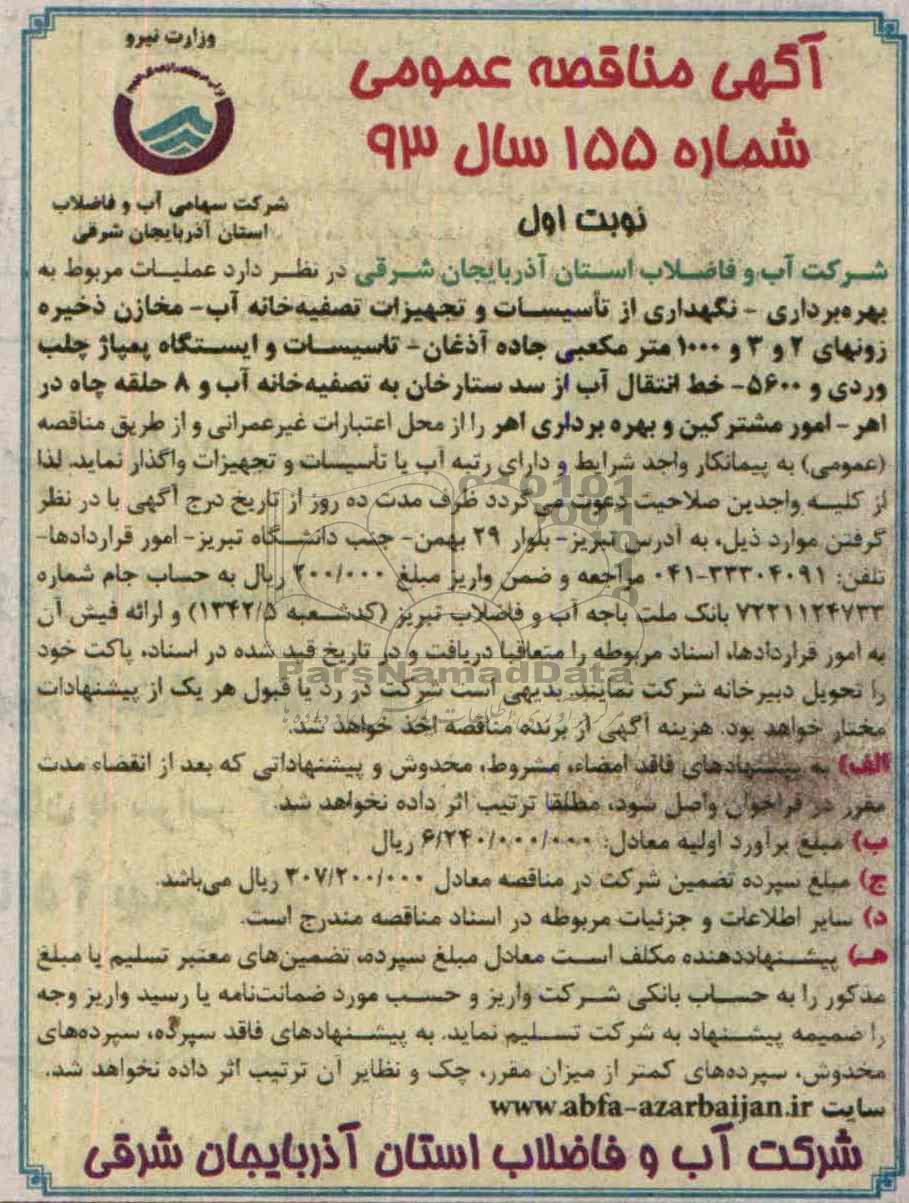 وزارت نیرو
شرکت سهامی آب و فاضلاب
استان آذربایجان شرقی
آگهی مناقصه عمومی
شماره ۱۵۵ سال ۹۳
نوبت اول
شرکت آب و فاضلاب استان آذربایجان شرقی در نظر دارد عملیات مربوط به
بهره‌برداری - نگهداری از تأسیسات و تجهیزات تصفیه‌خانه آب- مخازن ذخیره
زونهای ۲ و ۳ و ۱۰۰۰ متر مکعبی جاده آذغان- تاسیسات و ایستگاه پمپاژ چلب
وردی و ۵۶۰۰- خط انتقال آب از سد ستارخان به تصفیه‌خانه آب و ۸ حلقه چاه در
اهر- امور مشترکین و بهره برداری اهر را از محل اعتبارات غیرعمرانی و از طریق مناقصه
(عمومی) به پیمانکار واجد شرایط و دارای رتبه آب یا تأسیسات و تجهیزات واگذار نماید. لذا
از کلیه واجدین صلاحیت دعوت می‌گردد ظرف مدت ده روز از تاریخ درج آگهی با در نظر
گرفتن موارد ذیل، به آدرس تبریز- بلوار ۲۹ بهمن- جنب دانشگاه تبریز- امور قراردادها-
تلفن: ۳۳۳۰۴۰۹۱-۰۴۱ مراجعه و ضمن واریز مبلغ ۲۰۰/۰۰۰ ریال به حساب جام شماره
۷۲۲۱۱۲۴۷۳۳ بانک ملت باجه آب و فاضلاب تبریز (کدشعبه ۱۳۴۲/۵) و ارائه فیش آن
به امور قراردادها، اسناد مربوطه را متعاقبا دریافت و در تاریخ قید شده در اسناد، پاکت خود
را تحویل دبیرخانه شرکت نمایند. بدیهی است شرکت در رد یا قبول هر یک از پیشنهادات
مختار خواهد بود. هزینه آگهی از برنده مناقصه اخذ خواهد شد.
الف) به پیشنهادهای فاقد امضاء، مشروط، مخدوش و پیشنهاداتی که بعد از انقضاء مدت
مقرر در فراخوان واصل شود، مطلقا ترتیب اثر داده نخواهد شد.
ب) مبلغ برآورد اولیه معادل: ۶/۲۴۰/۰۰۰/۰۰۰ ریال
ج) مبلغ سپرده تضمین شرکت در مناقصه معادل ۳۰۷/۲۰۰/۰۰۰ ریال می‌باشد.
د) سایر اطلاعات و جزئیات مربوطه در اسناد مناقصه مندرج است.
هـ) پیشنهاددهنده مکلف است معادل مبلغ سپرده، تضمین‌های معتبر تسلیم یا مبلغ
مذکور را به حساب بانکی شرکت واریز و حسب مورد ضمانت‌نامه یا رسید واریز وجه
را ضمیمه پیشنهاد به شرکت تسلیم نماید. به پیشنهادهای فاقد سپرده، سپرده‌های
مخدوش، سپرده‌های کمتر از میزان مقرر، چک و نظایر آن ترتیب اثر داده نخواهد شد.
سایت www.abfa-azarbaijan.ir
شرکت آب و فاضلاب استان آذربایجان شرقی
ParsNamadData